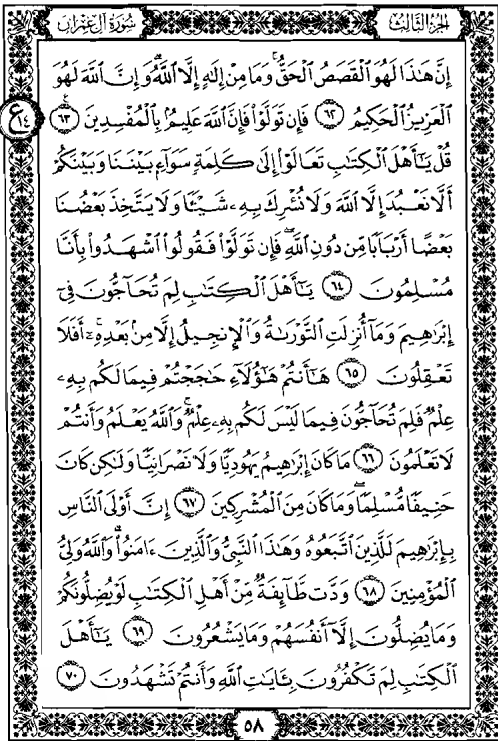 الجزء الثالث
سورة آل عمران
إِنَّ هَٰذَا لَهُوَ ٱلْقَصَصُ ٱلْحَقُّ ۚ وَمَا مِنْ إِلَٰهٍ إِلَّا ٱللَّهُ ۚ وَإِنَّ ٱللَّهَ لَهُوَ
ٱلْعَزِيزُ ٱلْحَكِيمُ ٦٢ فَإِن تَوَلَّوْا۟ فَإِنَّ ٱللَّهَ عَلِيمٌۢ بِٱلْمُفْسِدِينَ ٦٣
ع ١٤
قُلْ يَٰٓأَهْلَ ٱلْكِتَٰبِ تَعَالَوْا۟ إِلَىٰ كَلِمَةٍ سَوَآءٍۭ بَيْنَنَا وَبَيْنَكُمْ
أَلَّا نَعْبُدَ إِلَّا ٱللَّهَ وَلَا نُشْرِكَ بِهِۦ شَيْـًٔا وَلَا يَتَّخِذَ بَعْضُنَا
بَعْضًا أَرْبَابًا مِّن دُونِ ٱللَّهِ ۚ فَإِن تَوَلَّوْا۟ فَقُولُوا۟ ٱشْهَدُوا۟ بِأَنَّا
مُسْلِمُونَ ٦٤ يَٰٓأَهْلَ ٱلْكِتَٰبِ لِمَ تُحَآجُّونَ فِىٓ
إِبْرَٰهِيمَ وَمَآ أُنزِلَتِ ٱلتَّوْرَىٰةُ وَٱلْإِنجِيلُ إِلَّا مِنۢ بَعْدِهِۦٓ ۚ أَفَلَا
تَعْقِلُونَ ٦٥ هَٰٓأَنتُمْ هَٰٓؤُلَآءِ حَٰجَجْتُمْ فِيمَا لَكُم بِهِۦ
عِلْمٌ فَلِمَ تُحَآجُّونَ فِيمَا لَيْسَ لَكُم بِهِۦ عِلْمٌ ۚ وَٱللَّهُ يَعْلَمُ وَأَنتُمْ
لَا تَعْلَمُونَ ٦٦ مَا كَانَ إِبْرَٰهِيمُ يَهُودِيًّا وَلَا نَصْرَانِيًّا وَلَٰكِن كَانَ
حَنِيفًا مُّسْلِمًا وَمَا كَانَ مِنَ ٱلْمُشْرِكِينَ ٦٧ إِنَّ أَوْلَى ٱلنَّاسِ
بِإِبْرَٰهِيمَ لَلَّذِينَ ٱتَّبَعُوهُ وَهَٰذَا ٱلنَّبِىُّ وَٱلَّذِينَ ءَامَنُوا۟ ۗ وَٱللَّهُ وَلِىُّ
ٱلْمُؤْمِنِينَ ٦٨ وَدَّت طَّآئِفَةٌ مِّنْ أَهْلِ ٱلْكِتَٰبِ لَوْ يُضِلُّونَكُمْ
وَمَا يُضِلُّونَ إِلَّآ أَنفُسَهُمْ وَمَا يَشْعُرُونَ ٦٩ يَٰٓأَهْلَ
ٱلْكِتَٰبِ لِمَ تَكْفُرُونَ بِـَٔايَٰتِ ٱللَّهِ وَأَنتُمْ تَشْهَدُونَ ٧٠
٥٨